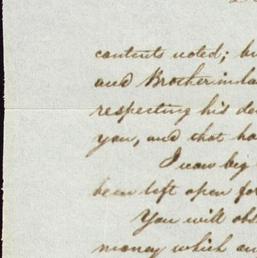 contents noted; bu
and Brother in la
respecting his de
you, and that ha
I now beg
been left open for
You will obs
money which an